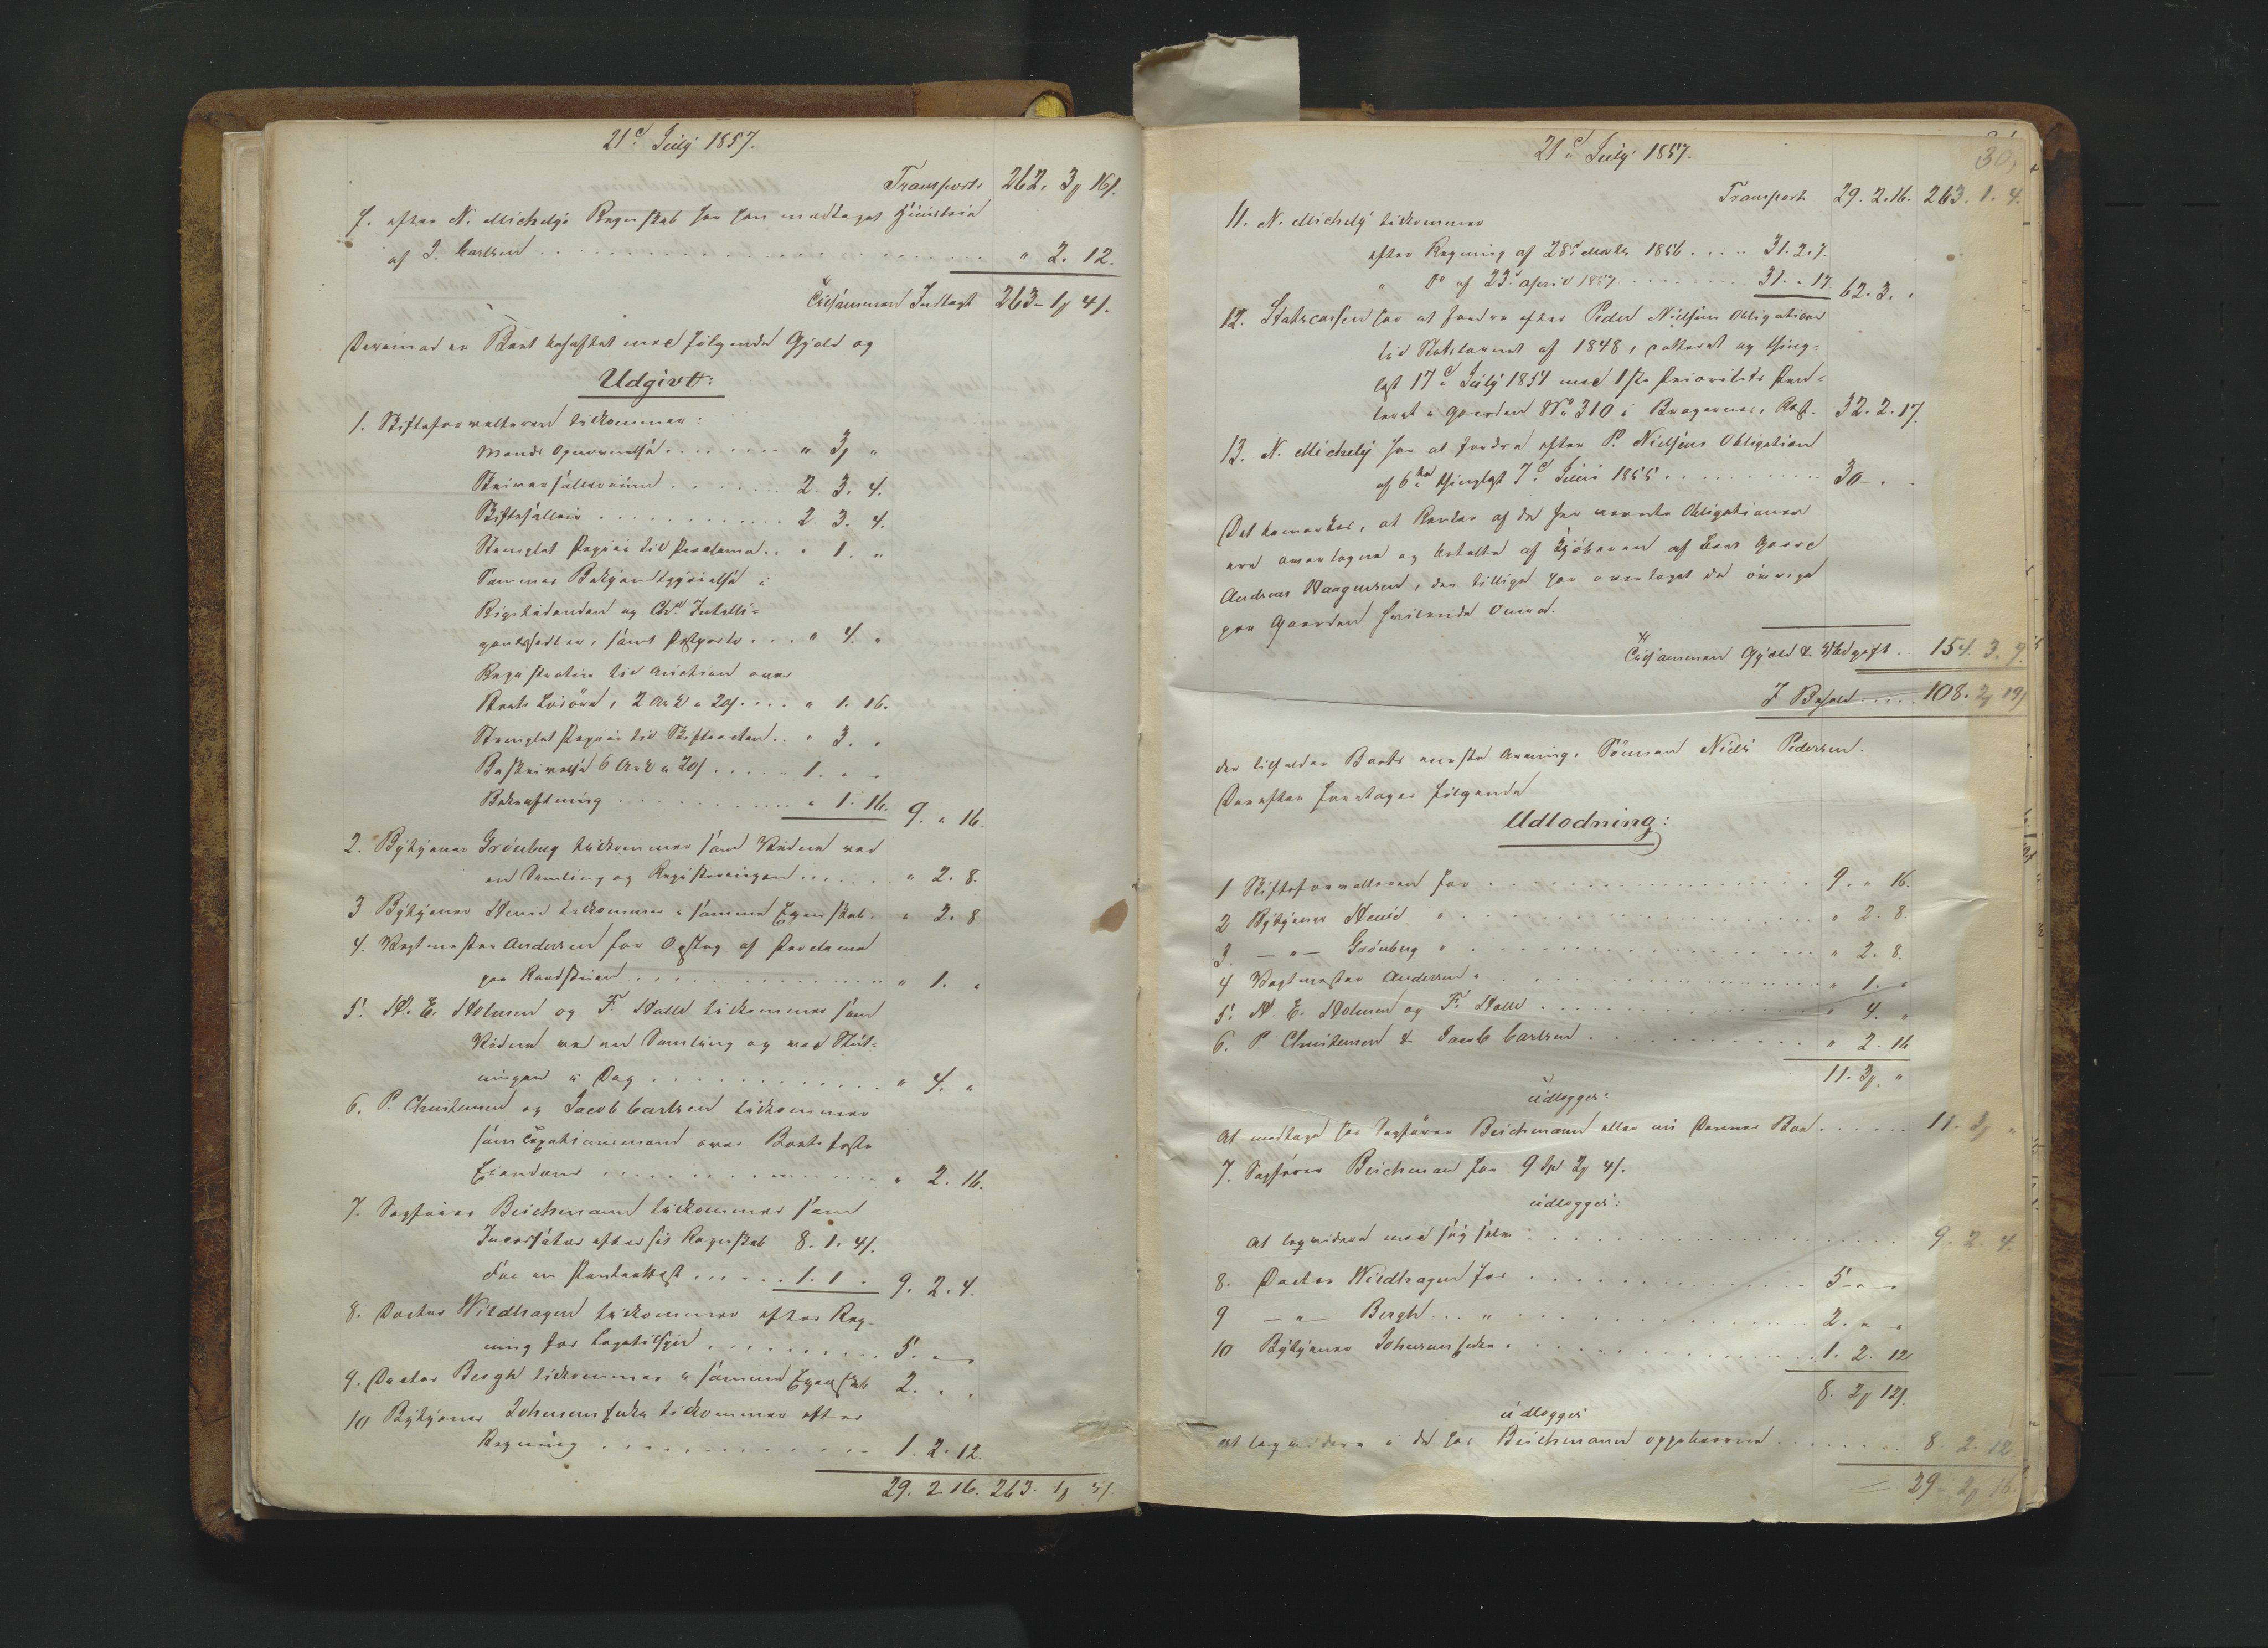 21de July 1857.
Transport 262. 3ƒ 16ſ.
f. efter N. Michelys Regnskab har han modtaget Huusleie
af I. Carlsen . . . " 2. 12.
Tilsammen Indtægt 263 - 1ƒ 4ſ.
Derimod er Boet behæftet med følgende Gjæld og
Udgivt:
1. Skifteforvalteren tilkommer:
. . . " 3ƒ "
Skriversallarium . . . 2. 3. 4.
Skiftesallair . . . 2. 3. 4.
Stemplet Papiir til Proclama . . " 1. "
Sammes Bekjendtgjørelse i
Rigstidenden og Chr. Intelli-
gentssedler, samt Postporto . . . " 4. "
til Auction over
Boets Løsøre, 2 Ark a 20ſ . . . " 1. 16.
Stemplet Papiir til Skifteacten . . " 3. "
Beskrivelse 6 Ark a 20ſ . . . 1. " "
Bekræftning . . . " 1. 16. 9. " 16.
2. Bytjener Grønberg tilkommer som Vidne ved
en Samling og Registreringen . . . " 2. 8.
3 Bytjener tilkommer i samme Egenskab . " 2. 8
4. Vagtmester Andersen for Opslag af Proclama
paa Raadstuen . . . " 1. "
5. H. E. Holmsen og F. Halle tilkommer som
Vidne ved en Samling og ved Slut-
ningen i Dag . . . " 4. "
6. P. Christensen og Jacob Carlsen tilkommer
som Taxationsmænd over Boets faste
Eiendom . . . " 2. 16.
7. Sagfører Beichmann tilkommer som
Incassator efter sit Regnskab 8. 1. 4ſ.
for en Panteattest . . . 1. 1. 9. 2. 4.
8. Doctor Wildhagen tilkommer efter Reg-
ning for Lægetilsyn . . . 5. " "
9. Doctor Bergh tilkommer i samme Egenskab 2. " "
10 Bytjener Johnsens Enke tilkommer efter
Regning . . . 1. 2. 12.
29. 2. 16. 263. 1ƒ 4ſ.
21de July 1857.
30,
Transport 29. 2. 16. 263. 1. 4.
11. N. Michely tilkommer
efter Regning af 28de 1856 . . . 31. 2. 7.
" Do af 23de April 1857 . . . 31. " 17. 62. 3. "
12. Statscassen har at fordre efter Peder Nielsens Obligation
til Statslaanet af 1848, dateret og thing-
læst 17de July 1851 med 1ste Prioritets Pan-
teret i Gaarden No 310 i Bragernes, Rest. 32. 2. 17.
13. N. Michely har at fordre efter P. Nielsens Obligation
af 6te thinglæst 7de Juni 1855 . . . 30 - " -
Det bemærkes, at Renter af de her nævnte Obligationer
ere overtagne og betalte af Kjøberen af Boets Gaard
Andreas Haagensen, der tillige har overtaget de øvrige
paa Gaarden hvilende Onera.
Tilsammen Gjæld & Udgift . . 154. 3. 9.
I Behold . . . 108. 2ƒ 19ſ
der tilfalder Boets eneste Arving, Sønnen Niels Pedersen.
Derefter foretages følgende
Udlodning:
1 Skifteforvalteren for . . . 9. " 16.
2 Bytjener " . . . " 2. 8.
3. — " — Grønberg " . . . " 2. 8.
4 Vagtmester Andersen " . . . " 1. "
5. H. E. Holmsen og F. Halle . . . " 4. "
6. P. Christensen & Jacob Carlsen . . . " 2. 16
11. 3ƒ. "
udlægges:
At modtage hos Sagfører Beichmann eller nu Dennes Boe . . . 11. 3ƒ "
7. Sagfører Beichmann for 9 Spd 2ƒ 4ſ.
udlægges:
At liqvidere med sig selv: . . . 9. 2. 4.
8. Doctor Wildhagen for . . . 5 - " "
9 — " — Bergh . . " . . . 2. " "
10 Bytjener Johnsens Enke . . . 1. 2. 12
8. 2ƒ 12ſ.
udlægges
at liqvidere i det hos Beichmann oppebaarne . . . 8. 2. 12
29 - 2ƒ 16.